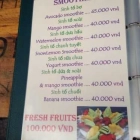 SMOOTHIE
Sinh tố bơ
Avocado smoothie 45.000 vnđ
Sinh tố xoài
Mango smoothie 40.000 vnđ
Sinh tố dưa hấu
Watermelon smoothie 40.000 vnđ
Sinh tố
smoothie 40.000 vnđ
Sinh tố chanh tuyết
smoothie 40.000 vnđ
Sinh tố sữa chua
Yogurt smoothie 40.000 vnđ
Sinh tố dứa & xoài
Pineapple
& mango smoothie 40.000 vnđ
Sinh tố chuối
Banana smoothie 40.000 vnđ
FRESH FRUITS
100.000 VNĐ